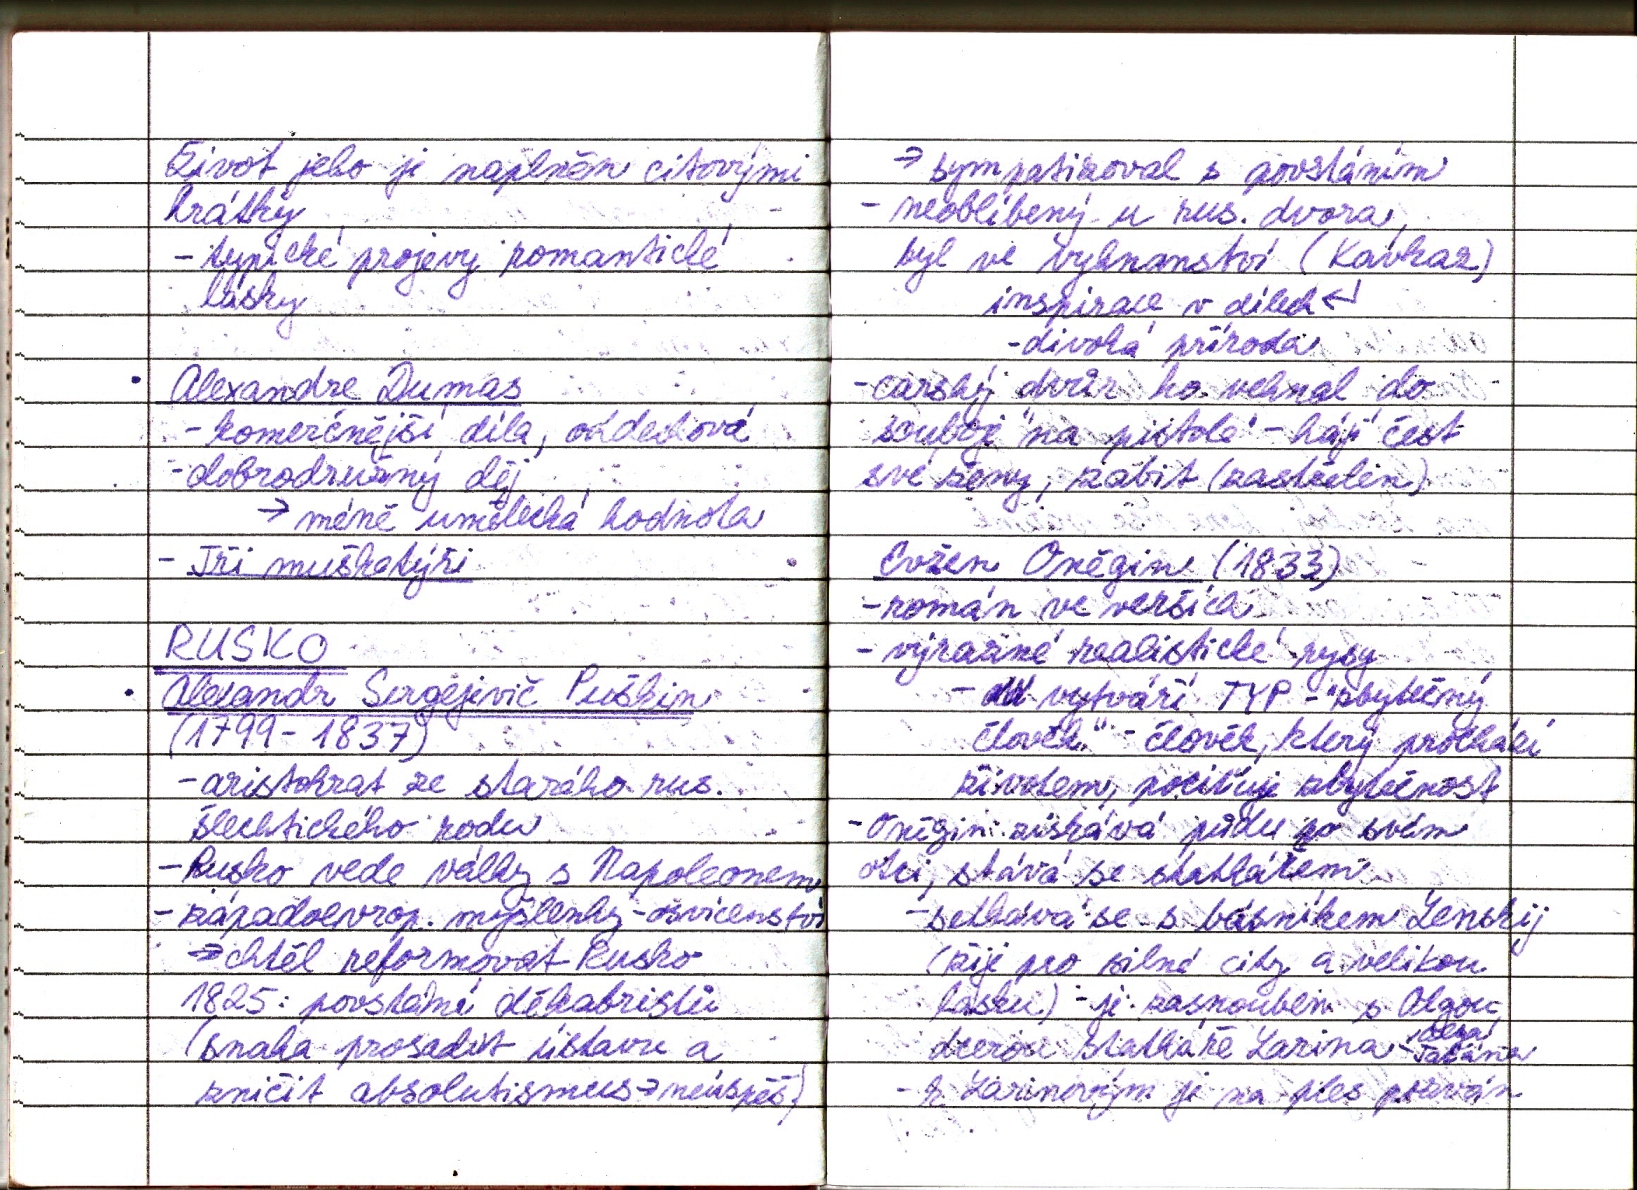 Život jeho je naplněn citovými
hrátky
- typické projevy romantické
lásky
• Alexandre Dumas
- komerčnější díla, oddechová
- dobrodružný děj
→ méně umělecká hodnota
- Tři mušketýři
RUSKO
• Alexandr Sergejevič Puškin
(1799 - 1837)
- aristokrat ze starého rus.
šlechtického rodu
- Rusko vede války s Napoleonem
- západoevrop. myšlenky - osvícenství
→ chtěl reformovat Rusko
1825: povstání děkabristů
(snaha prosadit ústavu a
zničit absolutismus → neúspěš)
→ sympatizoval s povstáním
- neoblíbený u rus. dvora,
byl ve vyhnanství (Kavkaz)
inspirace v dílech ↵
- divoká příroda
- carský dvůr ho vehnal do
souboje "na pistole" - hájí čest
své ženy, zabit (zastřelen)
Evžen Oněgin (1833)
- román ve verších
- výrazné realistické rysy
- vytváří TYP - "zbytečný
člověk" - člověk, který prochází
životem, pociťuje zbytečnost
- Oněgin získává půdu po svém
otci, stává se statkářem
- setkává se s básníkem Lenskij
(žije pro silné city a velikou
lásku) - je zasnouben s Olgou,
dcerou statkáře Larina - Taťána
- k Larinovým je na ples pozván